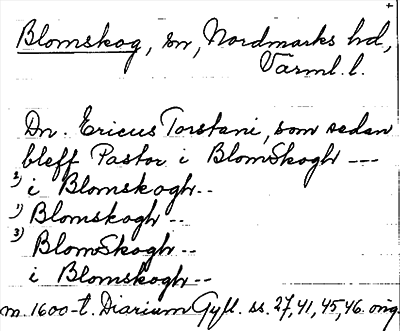 Blomskog, sn, Nordmarks hd,
Värml. l.
Dn. Ericus Torstani, som sedan
bleff Pastor i BlomSkogh ---
2) i Blomskogh--
1) Blomskogh --
3) BlomSkogh--
i Blomskogh--
m. 1600-t. Diarium Gyll. ss. 27, 41, 45, 46. orig.